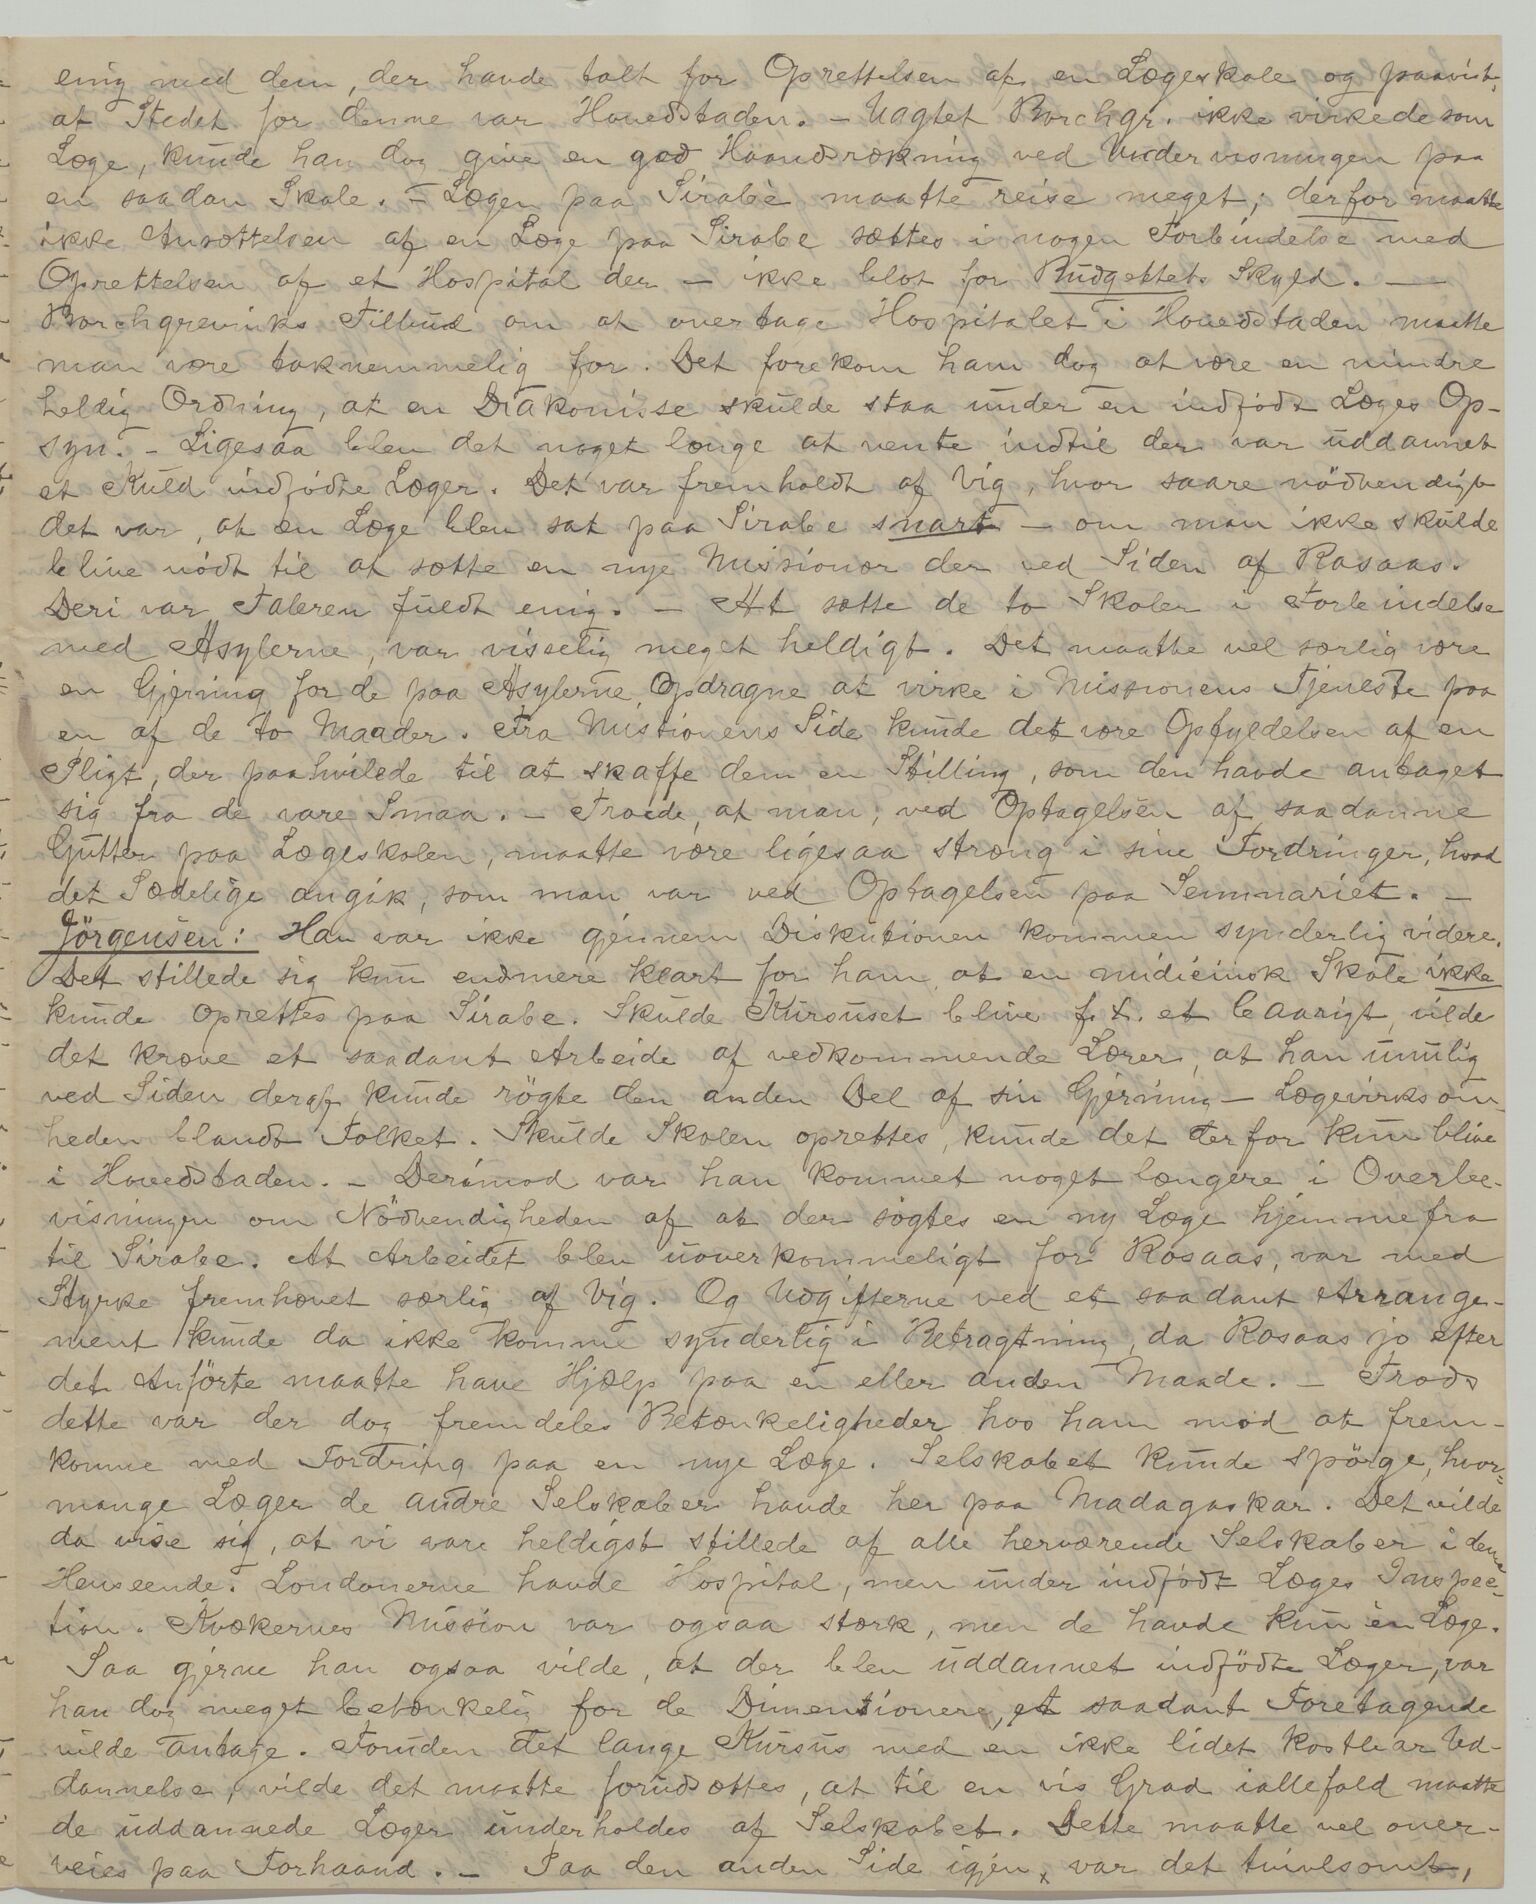 enig med dem, der havde talt for Oprettelsen af en Lægeskole og paavist,
at Stedet for denne var Hovedstaden. – Uagtet Borchgr. ikke virkede som
Læge, kunde han dog give en god Haandsrækning ved Undervisningen paa
en saadan Skole. – Lægen paa Sirabè maatte reise meget; derfor maatte
ikke Ansættelsen af en Læge paa Sirabe sættes i nogen Forbindelse med
Oprettelsen af et Hospital der – ikke blot for Budgettets Skyld. —
Borchgrevinks Tilbud om at overtage Hospitalet i Hovedstaden maatte
man være taknemmelig for. Det forekom ham dog at være en mindre
heldig Ordning, at en Diakonisse skulde staa under en indfødt Læges Op-
syn. – Ligesaa blev det noget længe at vente indtil der var uddannet
et Kuld indfødte Læger. Det var fremholdt af Vig, hvor saare nödvendigt
det var, at en Læge blev sat paa Sirabe snart – om man ikke skulde
blive nödt til at sætte en nye Missionær der ved Siden af Rosaas.
Deri var Taleren fuldt enig. – At sætte de to Skoler i Forbindelse
med Asylerne, var visselig meget heldigt. Det maatte vel særlig være
en Gjerning for de paa Asylerne Opdragne at virke i Missionens Tjeneste paa
en af de to Maader. Fra Missionens Side kunde det være Opfyldelsen af en
Pligt, der paahvilede til at skaffe dem en Stilling, som den havde antaget
sig fra de vare Smaa. – Troede, at man, ved Optagelsen af saadanne
Gutter paa Lægeskolen, maatte være ligesaa stræng i sine Fordringer, hvad
det Sædelige angik, som man var ved Optagelsen paa Seminariet. –
Jörgensen: Han var ikke gjennem Diskutionen kommen synderlig videre.
Det stillede sig kun endmere klart for ham, at en midicinsk Skole ikke
kunde oprettes paa Sirabe. Skulde Kursuset blive f. Ex. et 6aarigt, vilde
det kræve et saadant Arbeide af vedkommende Lærer, at han umulig
ved Siden deraf kunde rögte den anden Del af sin Gjerning – Lægevirksom-
heden blandt Folket. Skulde Skolen oprettes, kunde det derfor kun blive
i Hovedstaden. – Derimod var han kommet noget længere i Overbe-
visningen om Nödvendigheden af at der sögtes en ny Læge hjemmefra
til Sirabe. At Arbeidet blev uoverkommeligt for Rosaas, var med
Styrke fremhævet særlig af Vig. Og Udgifterne ved et saadant Arrange-
ment kunde da ikke komme synderlig i Betragtning, da Rosaas jo efter
det Anförte maatte have Hjælp paa en eller anden Maade. – Trods
dette var der dog fremdeles Betænkeligheder hos ham mod at frem-
komme med Fordring paa en nye Læge. Selskabet kunde spörge, hvor-
mange Læger de andre Selskaber havde her paa Madagaskar. Det vilde
da vise sig, at vi vare heldigst stillede af alle herværende Selskaber i denne
Henseende. Londonerne havde Hospital, men under indfödt Læges Inspec-
tion. Kvækernes Mission var ogsaa stærk, men de havde kun èn Læge.
Saa gjerne han ogsaa vilde, at der blev uddannet indfödte Læger, var
han dog meget betænkelig for de Dimentioner, et saadant Foretagende
vilde antage. Foruden det lange Kursus med en ikke lidet kostbar Ud-
dannelse, vilde det maatte forudsættes, at til en vis Grad iallefald maatte
de uddannede Læger underholdes af Selskabet. Dette maatte vel over-
veies paa Forhaand. – Paa den anden Side igjen, var det tvivlsomt,